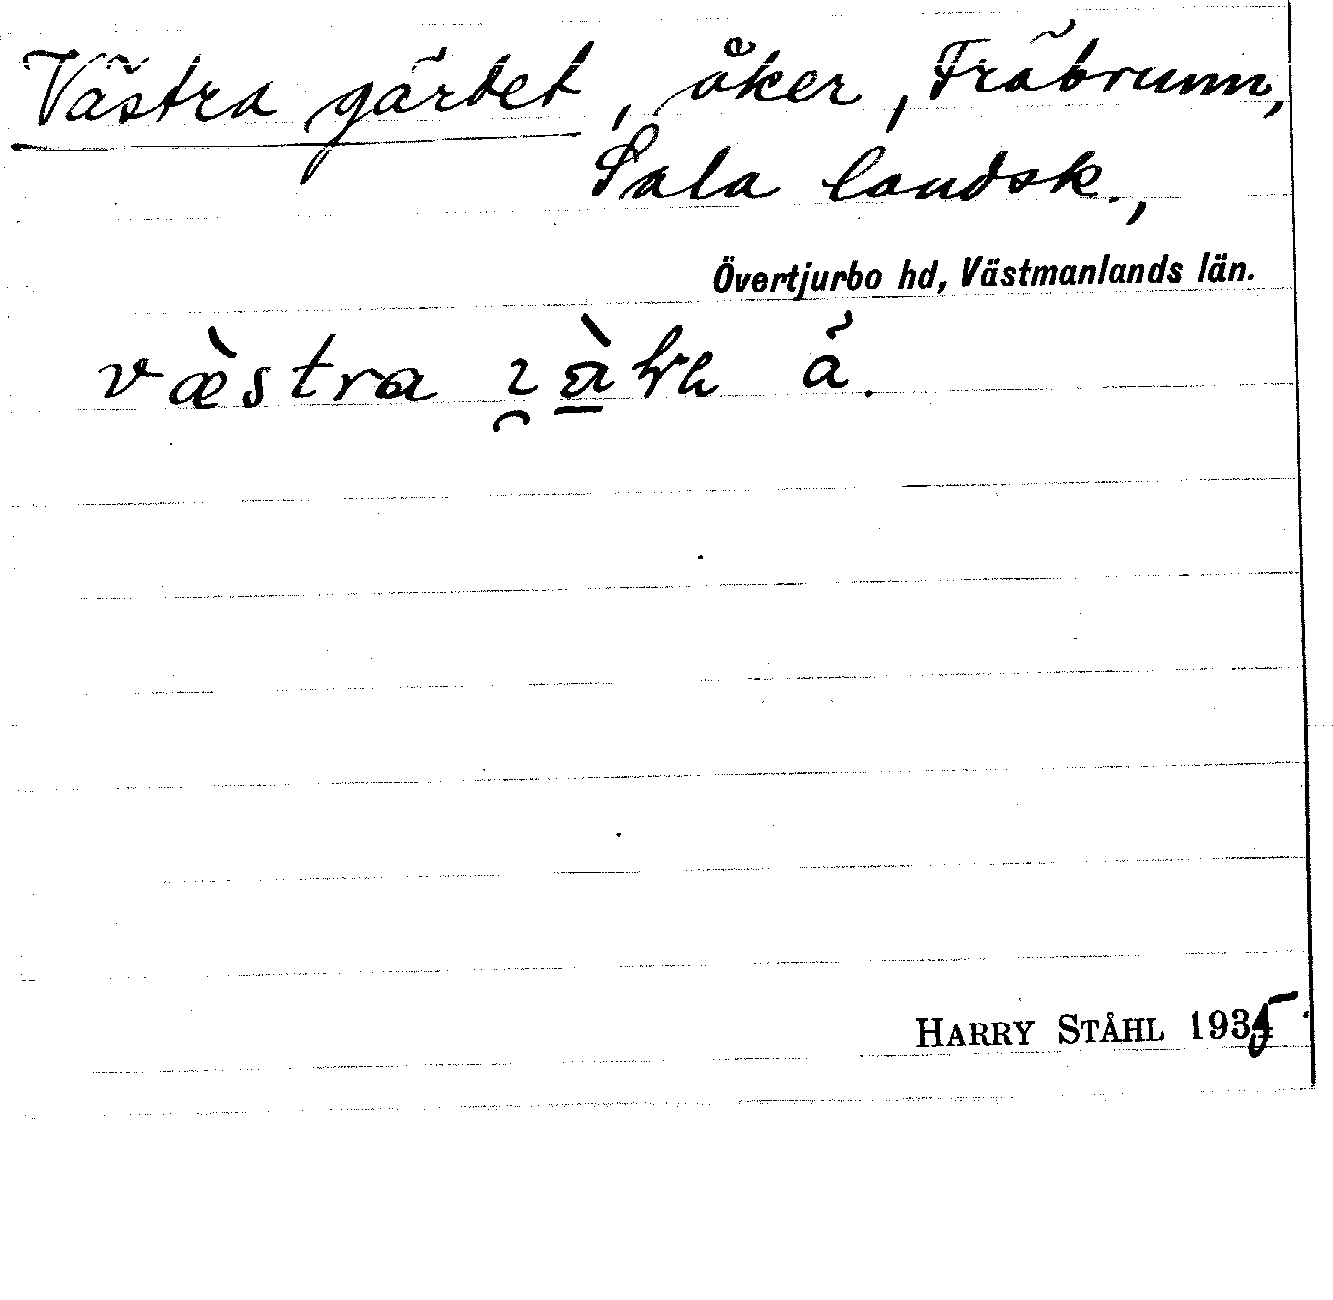 Västra gärdet, åker, Träbrunn,
Sala landsk.,
Övertjurbo hd, Västmanlands län.
væ̀stra
HARRY STÅHL 1935